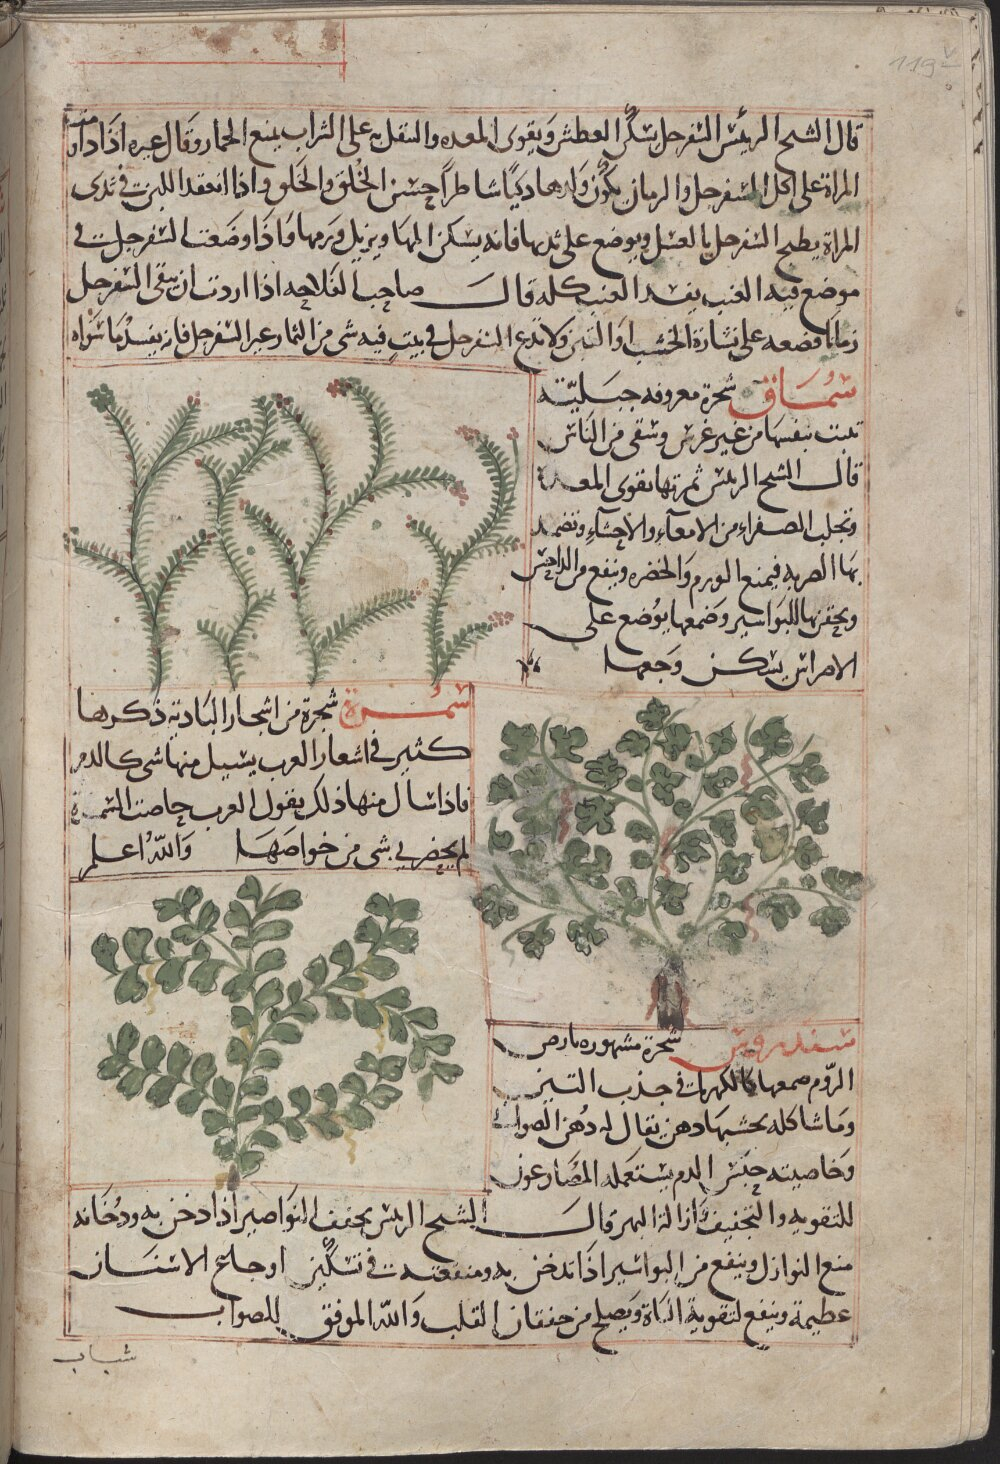 119v
قال الشيخ الرئيس السفرجل يسكن العطش ويقوى المعده والنقل به على الشراب يمنع الخمار وقال غيره اذا داومت
المراة على اكل السفرجل والرمان يكون ولدها ذكيا شاطرا حسن الخلق والخلق واذا انعقد اللبن فى ثدى
المراة يطبخ السفرجل بالعسل ويوضع على ثديها فانه يسكن المها ويزيل ورمها واذا وضعت السفرجل فى
موضع فيه العنب يفسد العنب كله قال صاحب الفلاحه اذا اردت ان يبقى السفرجل
زمانا فضعه على نشارة الخشب او التبن ولا تدع السفرجل فى بيت فيه شى من الثمار غير السفرجل فانه يفسد ما سواه
سماق شجرة معروفه جبلية
تنبت بنفسها من غير غرس وسقى من الناس
قال الشيخ الرئيس ثمرتها تقوى المعدة
وتجلب الصفراء من الامعاء والاحشاء وتضمد
بها الضربه فيمنع الورم والخضره وينفع من الداحس
ويحقن بها للبواسير وضمغها يوضع على
الاضراس يسكن وجعها
سمرة شجرة من اشجار البادية ذكرها
كثير فى اشعار العرب يسيل منها شى كالدم
فاذا سال منها ذلك يقول العرب حاضت السمرة
لم يحضرنى شى من خواصها والله اعلم
سندروس شجرة مشهوره بارض
الروم صمغها كالكهربا فى جذب التبن
وما شاكله بخشبها دهن يقال له دهن الصوابى
وخاصيته حبس الدم يستعمله المصارعون
للتقويه والتجفيف وازالة البهر قال الشيخ الرئيس يجفف النواصير اذا دخن به ودخانه
منع النوازل وينفع من البواسير اذا تدخن به ومنفعته فى تسكين اوجاع الاسنان
عظيمة وينفع لتقوية الباة ويصلح من خفقان القلب والله الموفق للصواب
شباب